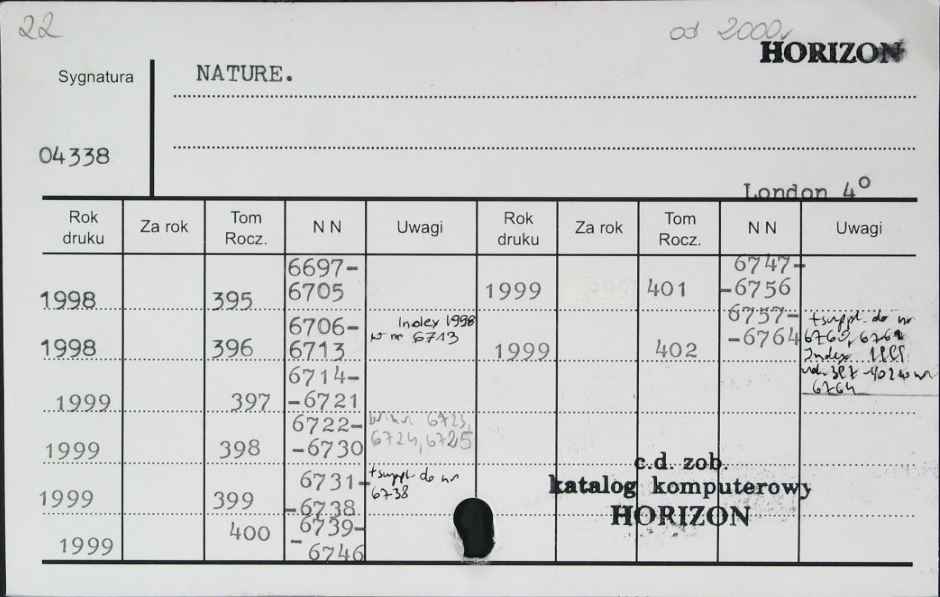 22
od 2000r
HORIZON
Sygnatura
NATURE.
04338
London 4°
Rok druku Za rok Tom Rocz. N N Uwagi Rok druku Za rok Tom Rocz. N N Uwagi
1998 395 6697-6705
1998 396 6706-6713 Index 1998 w nr 6713
1999 397 6714--6721
1999 398 6722--6730 6723, 6724, 6725
1999 399 6731--6738 + suppl. do nr 6738
1999 400 6739--6746
1999 401 6747--6756
1999 402 6757--6764 + suppl. do nr
Index
6764
c.d. zob.
katalog komputerowy
HORIZON